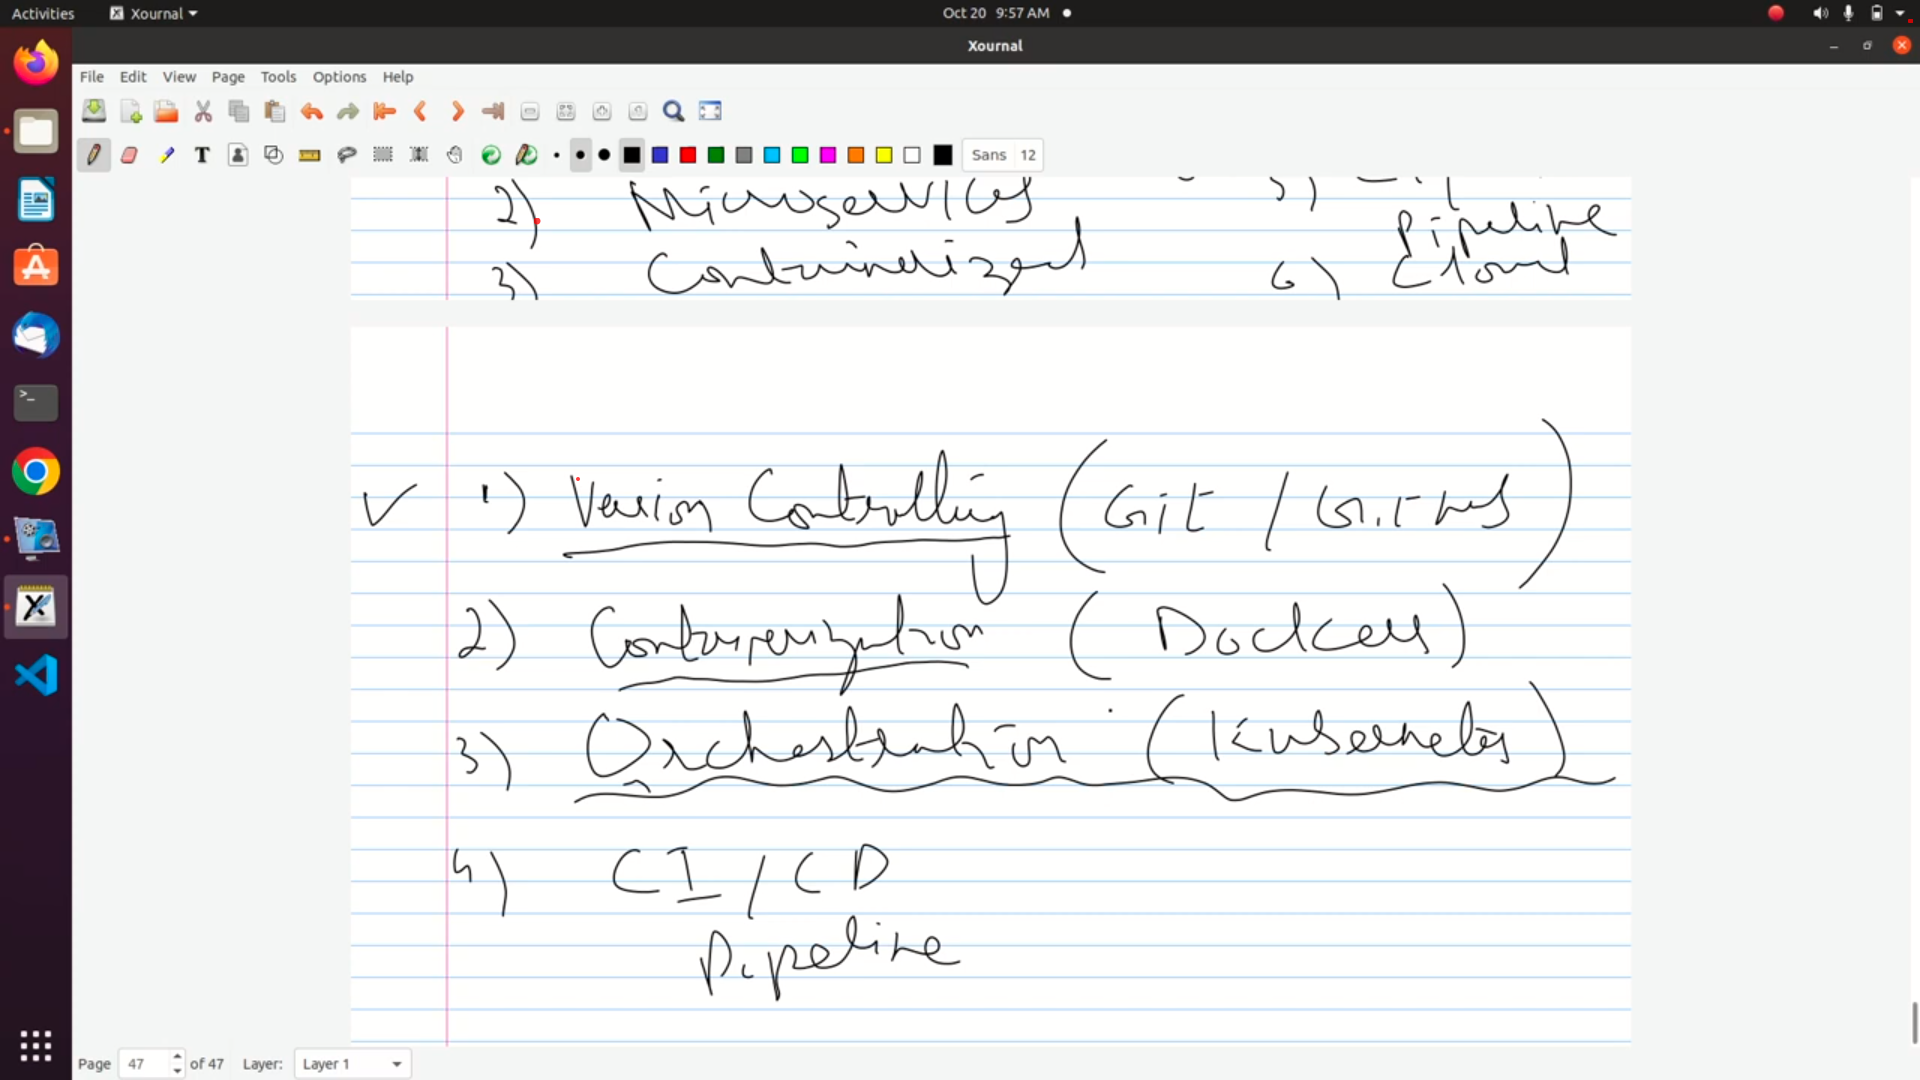 Activities Xournal Oct 20 9:57 AM
Xournal
File Edit View Page Tools Options Help
Sans 12
2) Microservices
Pipeline
3) Containerized 6) Cloud
1) Version Controlling (Git / GitHub)
2) Containerization (Docker)
3) Orchestration (Kubernetes)
4) CI / CD
Pipeline
Page 47 of 47 Layer: Layer 1